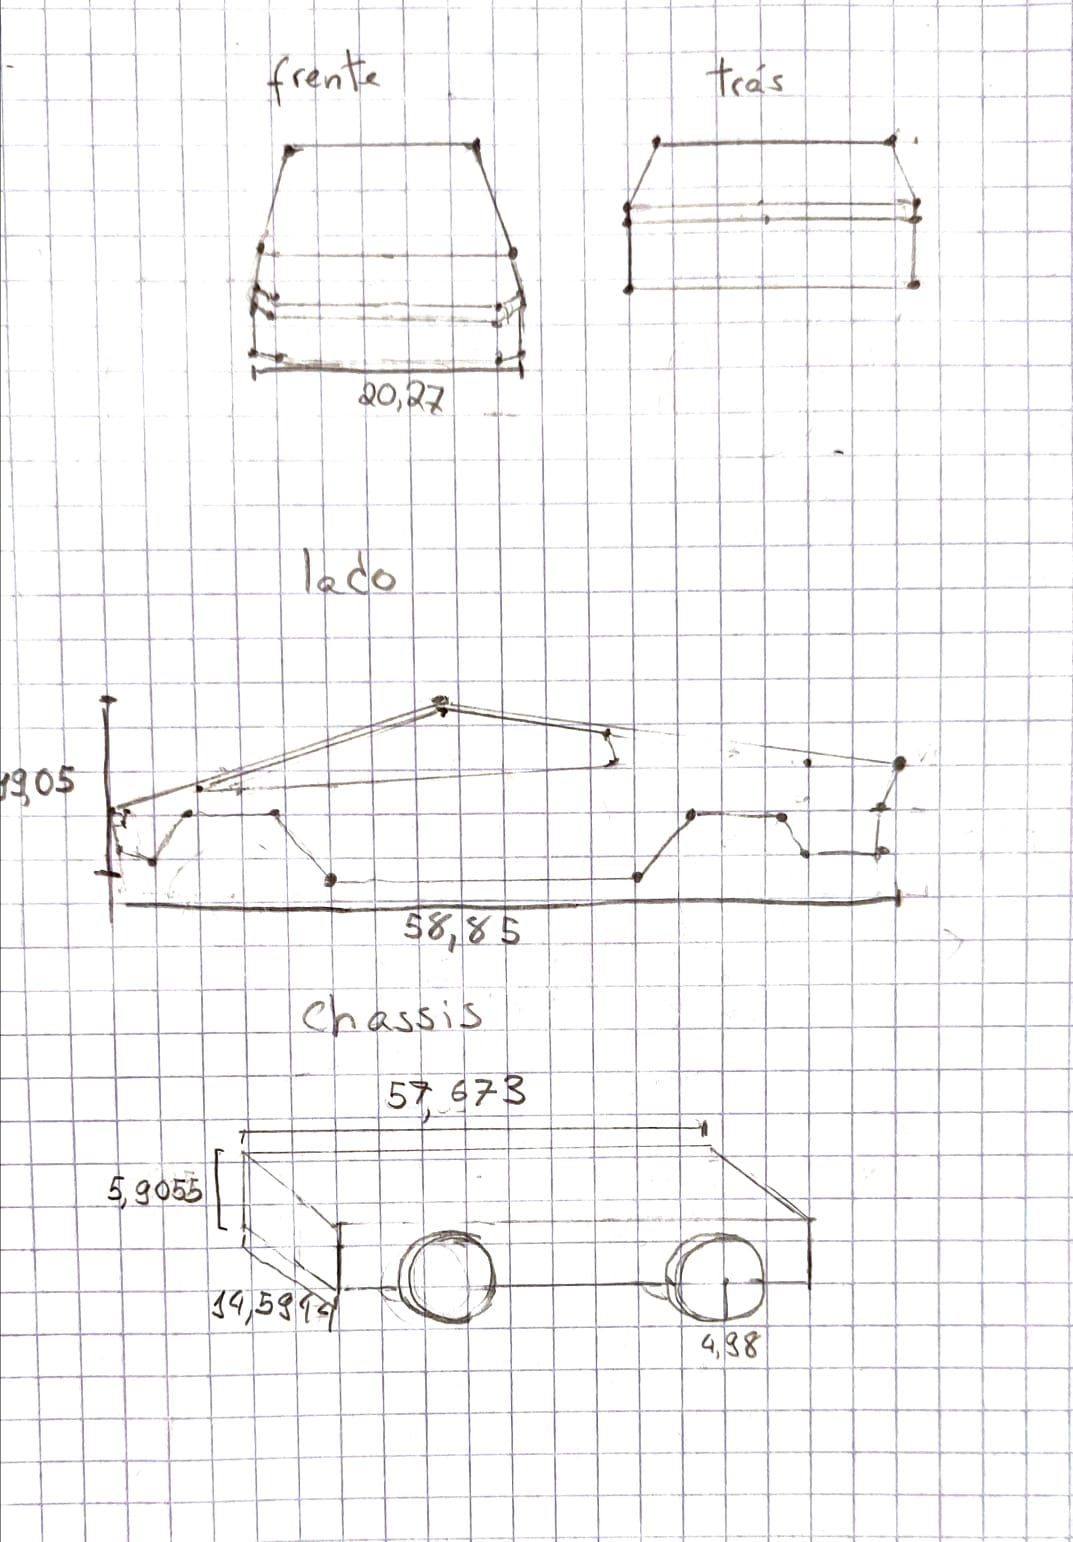 frente
trás
20,27
lado
19,05
58,85
Chassis
57,673
5,9055
14,5944
4,98